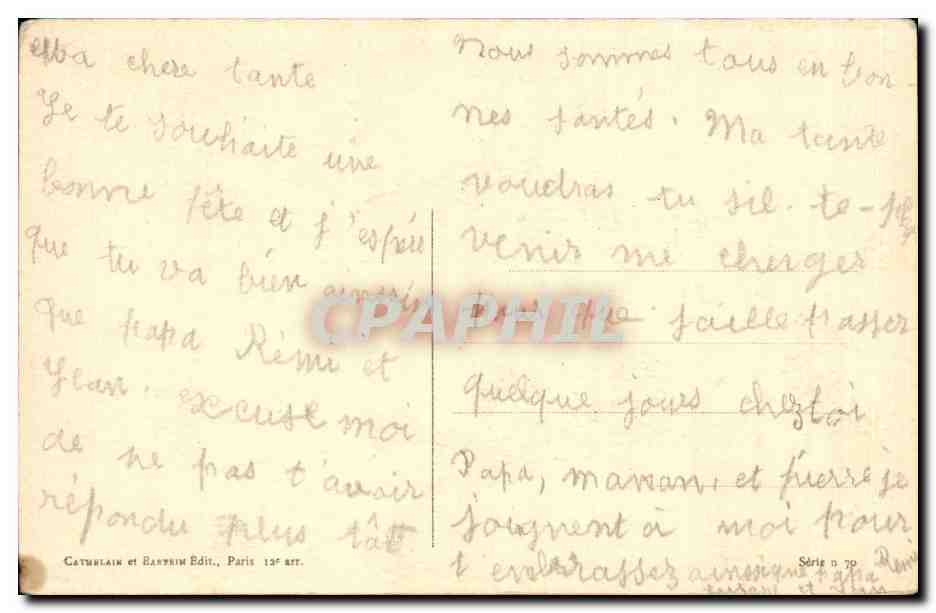 Ma chere tante
Je te souhaite une
bonne fête et j'espére
que tu va bien ainesi
que papa Rémi et
Jean. excuse moi
de ne pas t'avoir
répondu plus tôt
Nous sommes tous en bon-
nes santés. Ma tante
voudras tu sil-te-plz
venir me cherger
pour que jaille passer
quelque jours chez toi
Papa, maman, et pierre je
joignent à moi pour
t'enbrassez ainesique papa Rémi
et Jean
CAPHIL
CATHELAIN et BASTRIM Édit., Paris 12e arr.
Série n 70